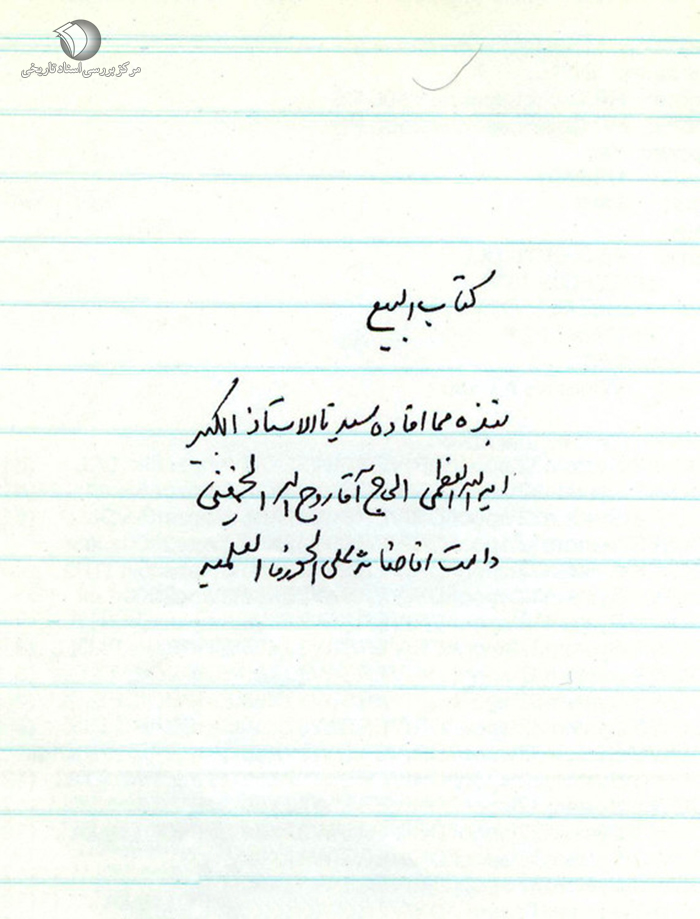 مرکز بررسی اسناد تاریخی
کتاب البیع
نبذه مما افاده سیدنا الاستاذ الکبیر
ایه الله العظمی الحاج آقا روح الله الخمینی
دامت افاضاته علی الحوزة العلمیه